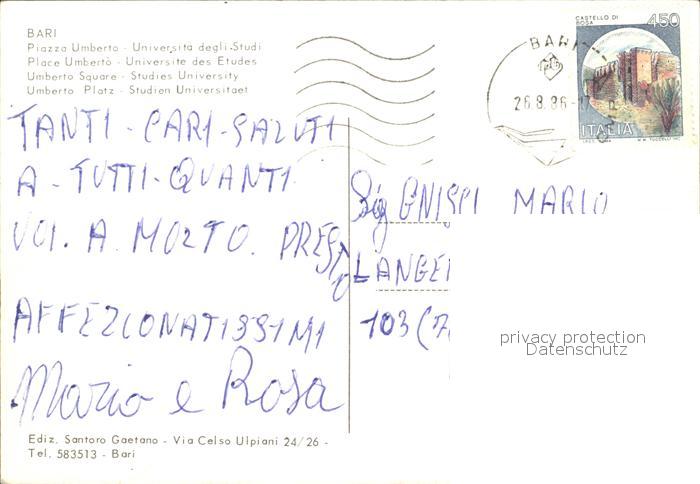 BARI
Piazza Umberto - Università degli Studi
Place Umbertò - Universite des Etudes
Umberto Square - Studies University
Umberto Platz - Studien Universitaet
CASTELLO DI
ROSA
450
BARI
26.8.86-17
ITALIA
TANTI - CARI - SALUTI
A - TUTTI - QUANTI
VOI. A. MOLTO. PRESTO
AFFEZIONATISSIMI
Mario e Rosa
Sig GNISPI MARIO
LANGE
103 (7
privacy protection
Datenschutz
Ediz. Santoro Gaetano - Via Celso Ulpiani 24/26 -
Tel. 583513 - Bari